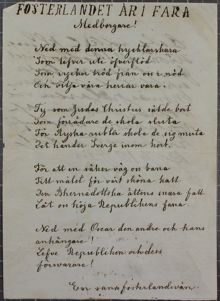 FOSTERLANDET ÄR I FARA
Medborgare!
Ned med denna hycklarskara
Som lefver ute öfverflöd
Som rycker bröd från oss i nöd
Och vilja våra herrar vara.
Ty som Judas Christus sålde bort
Som förrädare de skola sluta
För Ryska rubla skola de sig muta
Det händer Sverge inom kort.
För att en säker väg oss bana
Till målet för vårt sköna hatt
Den Bernadottska ättens snara fall
Låt oss höja Republikens fana
Ned med Oscar den andre och hans
anhängare!
Lefve Republiken och dess
försvarare!
En sann fosterlandsvän.